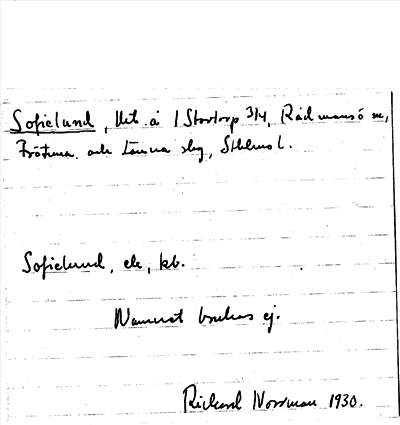 Sofielund, Utb. å 1 Stortorp 3/4, Rådmansö sn,
Frötuna och Länna slg, Sthlms l.
Sofielund, ek. kb.
Namnet brukas ej.
Richard Norrman 1930.